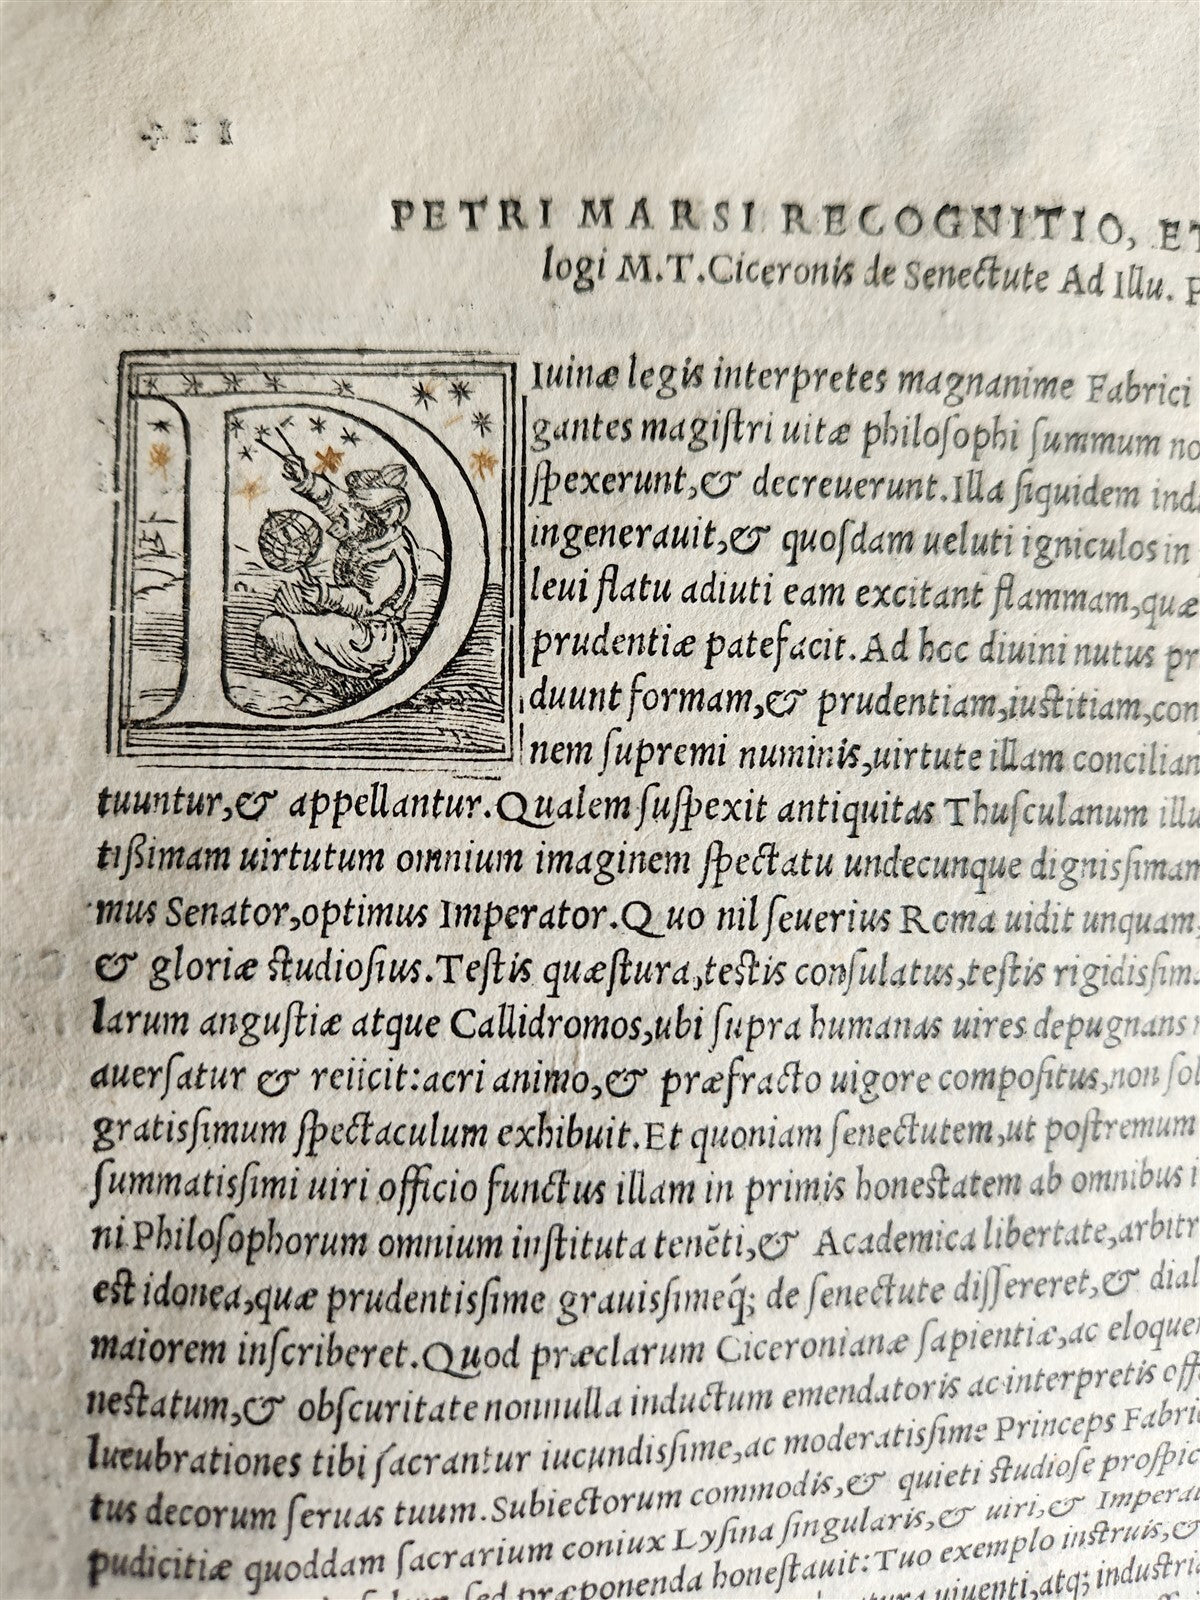 PETRI MARSI RECOGNITIO, ET
logi M.T.Ciceronis de Senectute Ad Illu. P
DIuinæ legis interpretes magnanime Fabrici
gantes magiſtri uitæ philoſophi ſummum no
ſpexerunt,& decreuerunt.Illa ſiquidem ind
ingenerauit,& quoſdam ueluti igniculos in
leui flatu adiuti eam excitant flammam,quæ
prudentiæ patefacit.Ad hoc diuini nutus pr
duunt formam,& prudentiam,iuſtitiam,con
nem ſupremi numinis,uirtute illam concilian
tuuntur,& appellantur.Qualem ſuſpexit antiquitas Thuſculanum illu
tiſsimam uirtutum omnium imaginem ſpectatu undecunque digniſsimam
mus Senator,optimus Imperator.Quo nil ſeuerius Roma uidit unquam,
& gloriæ ſtudioſius.Teſtis quæſtura,teſtis conſulatus,teſtis rigidiſsim
larum anguſtiæ atque Callidromos,ubi ſupra humanas uires depugnans
auerſatur & reiicit:acri animo,& præfracto uigore compoſitus,non ſol
gratiſsimum ſpectaculum exhibuit.Et quoniam ſenectutem,ut poſtremum
ſummatiſsimi uiri officio functus illam in primis honeſtatem ab omnibus i
ni Philoſophorum omnium inſtituta tenēti,& Academica libertate,arbitr
eſt idonea,quæ prudentiſsime grauiſsimeq́; de ſenectute diſſereret,& dial
maiorem inſcriberet.Quod præclarum Ciceronianæ ſapientiæ,ac eloquen
neſtatum,& obſcuritate nonnulla inductum emendatoris ac interpretis off
lucubrationes tibi ſacrantur iucundiſsime,ac moderatiſsime Princeps Fabri
tus decorum ſeruas tuum.Subiectorum commodis,& quieti ſtudioſe proſpic
pudicitiæ quoddam ſacrarium coniux Lyſina ſingularis,& uiri,& Impera
ſed præponenda honeſtauit:Tuo exemplo inſtruis,&
uiuenti,atq; induſtri